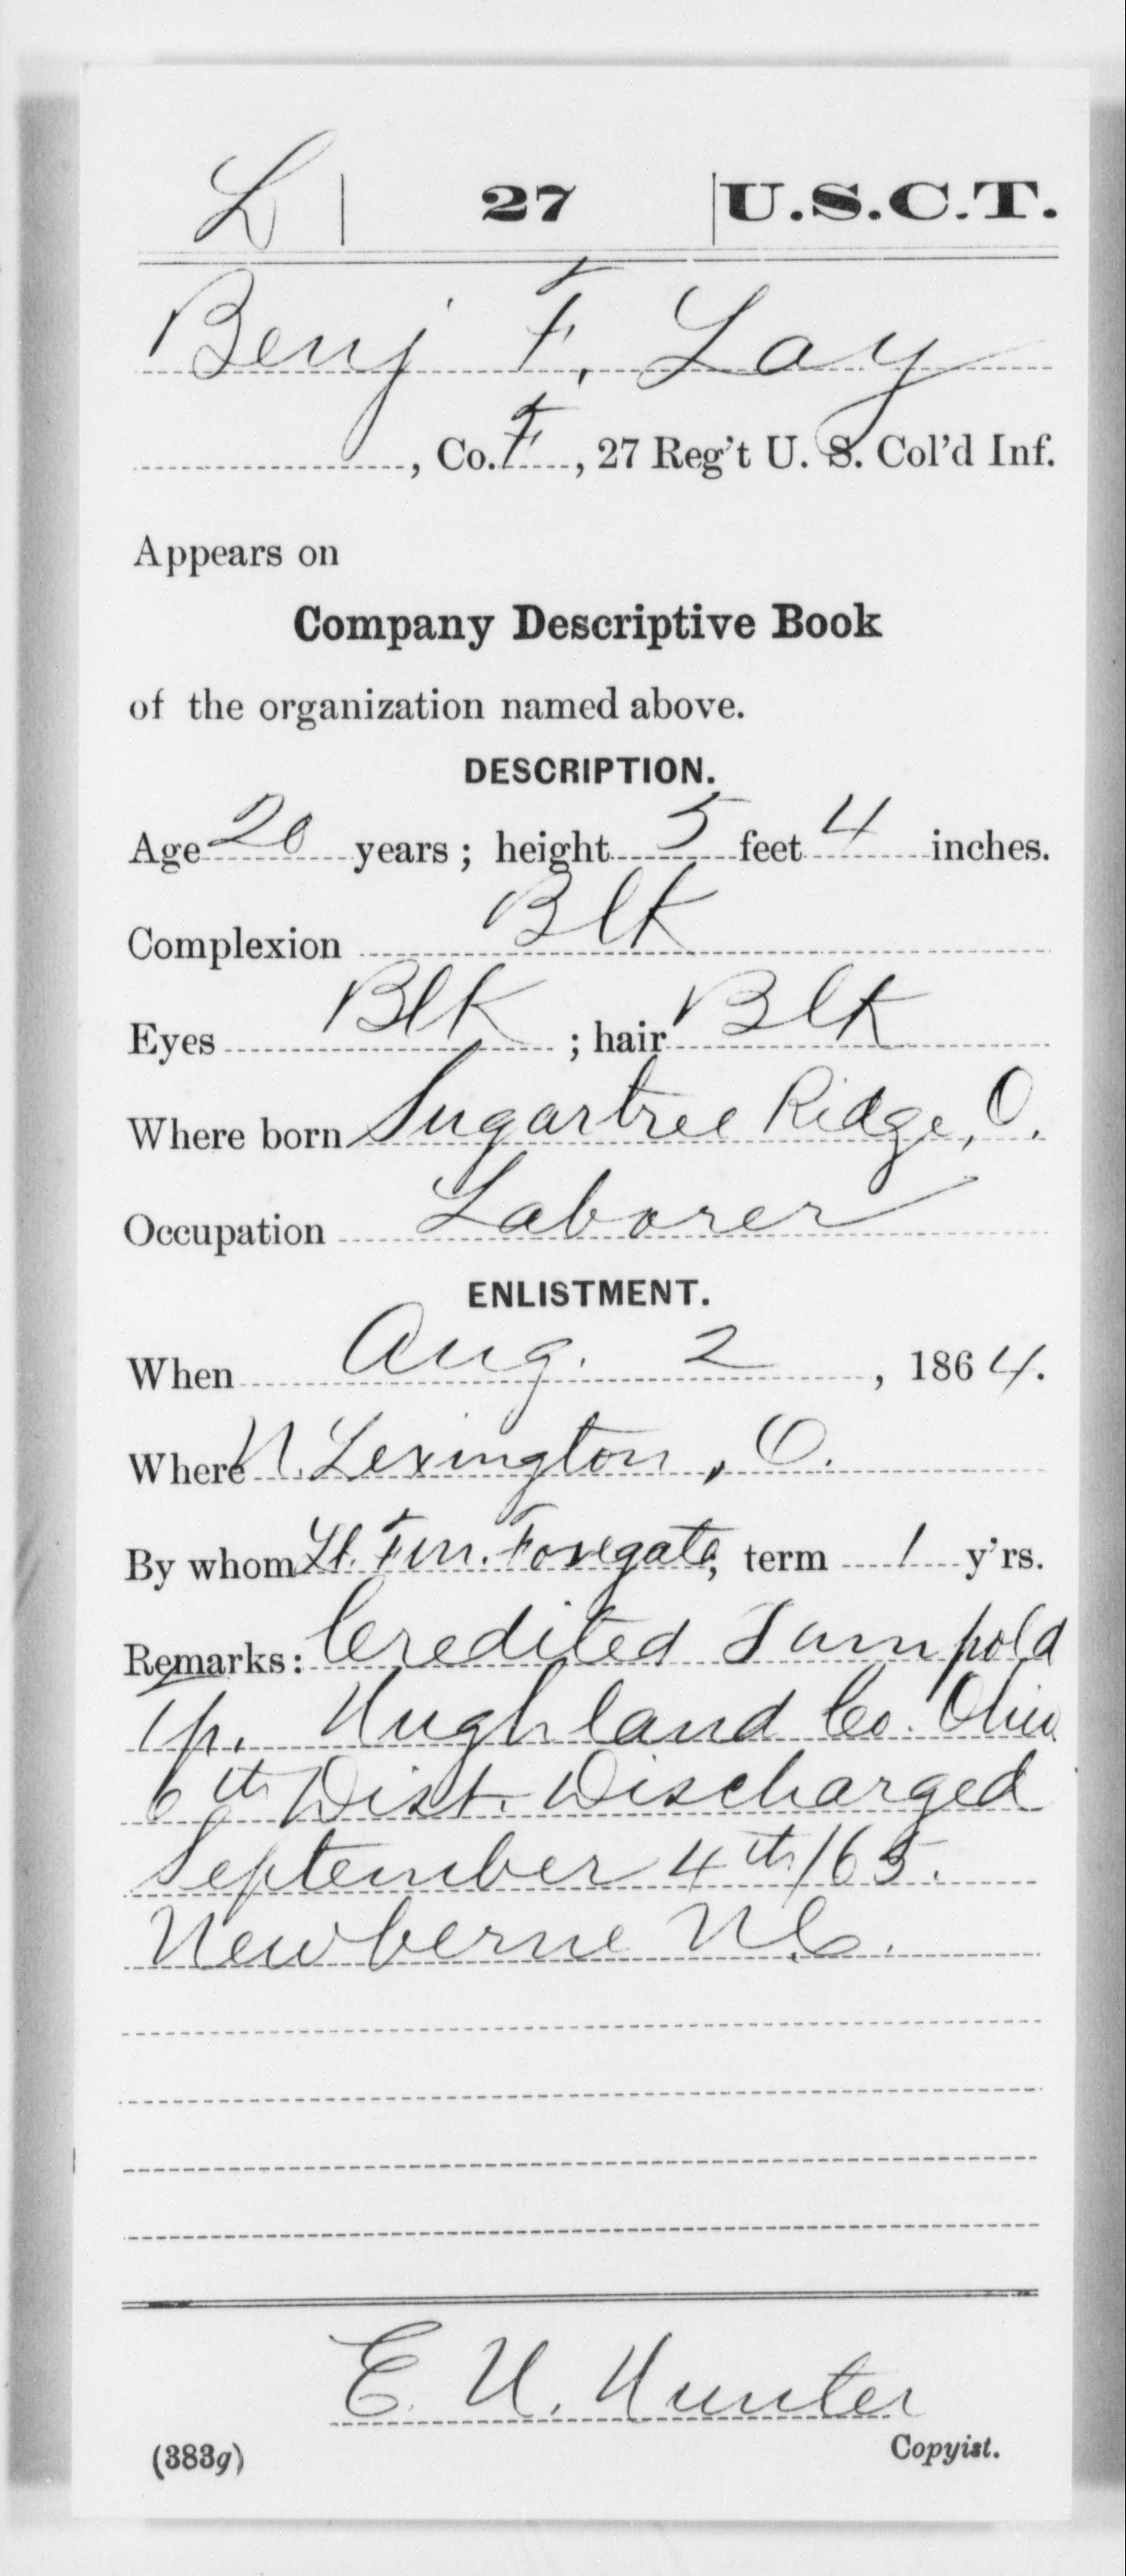 L | 27 | U.S.C.T.
Benj F. Lay
, Co. F, 27 Reg't U. S. Col'd Inf.
Appears on
Company Descriptive Book
of the organization named above.
DESCRIPTION.
Age 20 years; height 5 feet 4 inches.
Complexion Blk
Eyes Blk; hair Blk
Where born Sugartree Ridge, O.
Occupation Laborer
ENLISTMENT.
When Aug. 2, 1864.
Where N. Lexington, O.
By whom Lt. , term 1 y'rs.
Remarks: Credited
tp. Hughland Co. Ohio
6th Dist. Discharged
September 4th/65.
Newberne N.C.
E. H. Hunter
(383g) Copyist.